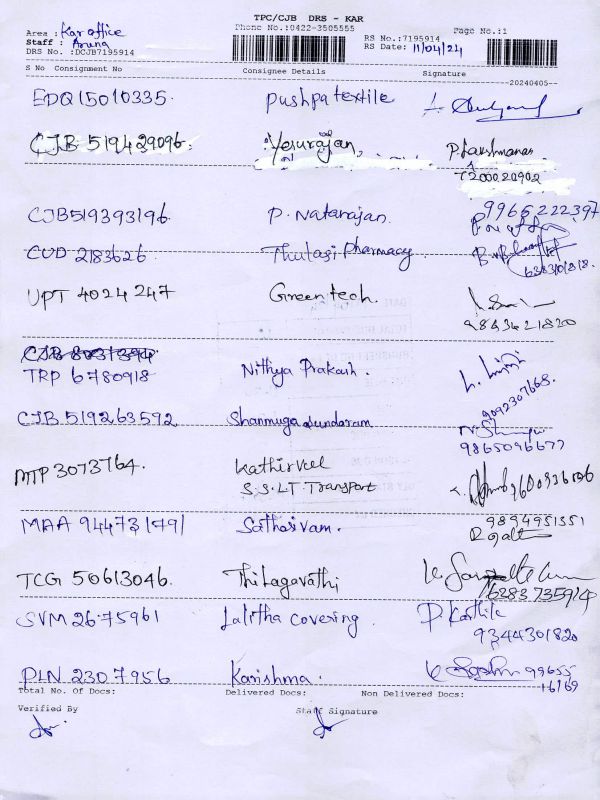 TPC/CJB DRS - KAR
Area : Kar office Phone No.:0422-3505555 Page No.:1
Staff : Aruna RS No.:7195914
DRS No. :DCJB7195914 RS Date: 11/04/24
S No Consignment No Consignee Details Signature
20240405
EDQ15010335. pushpa textile
CJB 519429096. Yesurajan, P. Lakshmanan
7200020902
CJB519393196 P. Natarajan. 9966222397
CUD 2183626 Thulasi Pharmacy
UPT 4024 247 Greentech.
9843621820
TRP 6780918 Nithya Prakash.
9092307668
CJB 519263592 Shanmuga Sundaram
9865096677
MTP 3073764. Kathirvel
S.S.LT. Transport
MAA 944731791 Sathasivam. 9894951351
TCG 50613046. Thilagavathi
6283735914
SVM 2675961 Lalitha covering. P. Karthik
9344301820
PLN 2307956 Karishma.
Total No. Of Docs: Delivered Docs: Non Delivered Docs:
Verified By Staff Signature